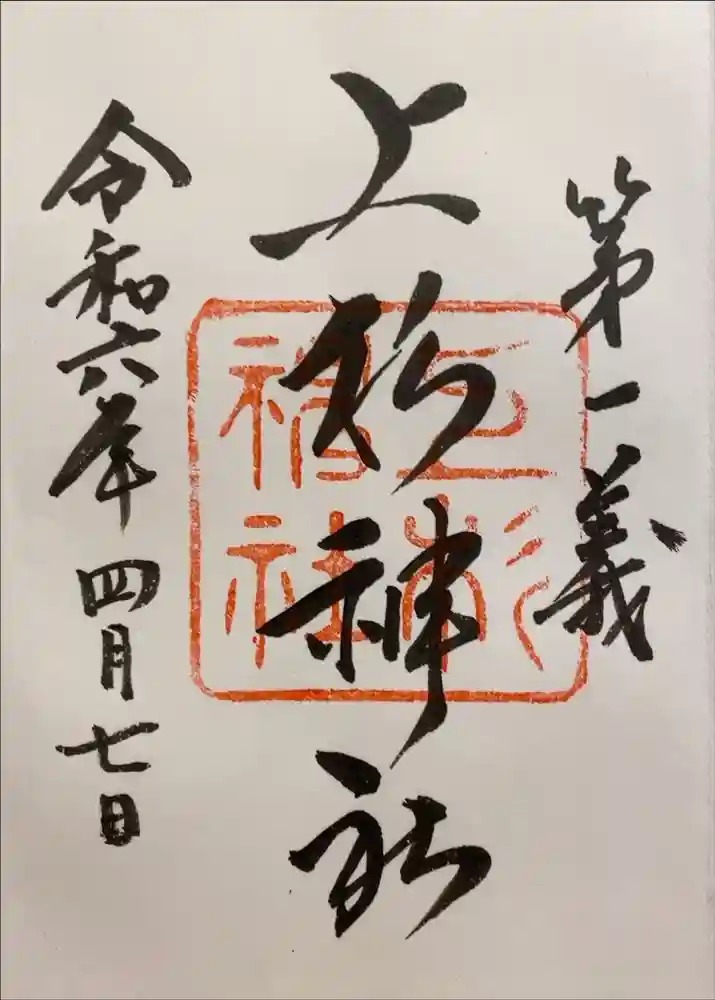 第一義
上杉神社
上杉神社
令和六年四月七日